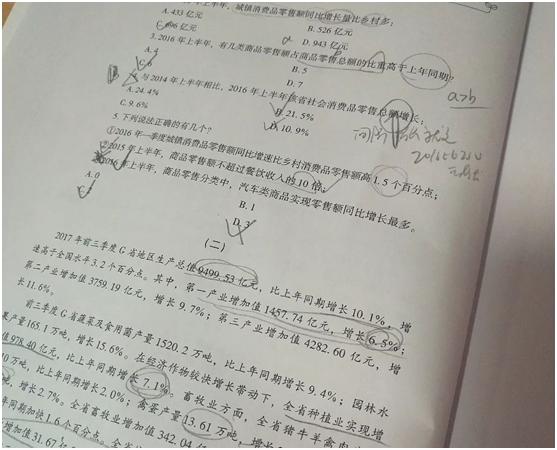 年上半年,城镇消费品零售额同比增长量比乡村多:
A. 433 亿元
B. 526 亿元
C. 696 亿元
D. 943 亿元
3. 2016 年上半年,有几类商品零售额占商品零售总额的比重高于上年同期?
A. 4
B. 5
C. 6
D. 7
4. 与 2014 年上半年相比,2016 年上半年该省社会消费品零售总额增长:
A. 24.4%
B. 21.5%
C. 9.6%
D. 10.9%
a>b
5. 下列说法正确的有几个?
①2016 年一季度城镇消费品零售额同比增速比乡村消费品零售额高 1.5 个百分点;
②2015 年上半年,商品零售额不超过餐饮收入的 10 倍;
年上半年,商品零售分类中,汽车类商品实现零售额同比增长最多。
A. 0
B. 1
D. 3
(二)
2017 年前三季度 G 省地区生产总值 9499.53 亿元,比上年同期增长 10.1%,增
速高于全国水平 3.2 个百分点。其中,第一产业增加值 1457.74 亿元,增长 6.5%;
第二产业增加值 3759.19 亿元,增长 9.7%;第三产业增加值 4282.60 亿元,增
长 11.6%。
前三季度 G 省蔬菜及食用菌产量 1520.2 万吨,比上年同期增长 9.4%;园林水
果产量 165.1 万吨,增长 15.6%。在经济作物较快增长带动下,全省种植业实现增
值 978.40 亿元,比上年同期增长 7.1%。畜牧业方面,全省猪牛羊禽肉
万吨,比上年同期增长 2.0%;禽蛋产量 13.61 万吨,增长
,增长 2.7%。全省畜牧业增加值 342.04 亿
年同期加快 1.6 个百分点。全省
增加值 31.67 亿